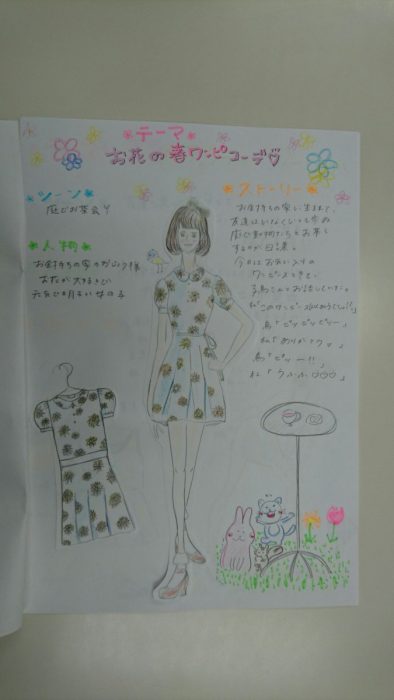 *テーマ*
お花の春ワンピコーデ
*シーン*
庭でお茶会
*人物*
お金持ちの家のお嬢様
お花が大好きで
元気で明るい女の子
*ストーリー*
お金持ちの家に生まれて、
友達はいなくていつも
庭で動物たちとお茶を
するのが日課。
今日はお気に入りの
ワンピースをきて、
鳥さんとお話していた。
私「このワンピース似合うでしょ!!」
鳥「ピッピッピピー」
私「ありがトウ」
鳥「ピリー!!」
私「うふふ♡♡♡」